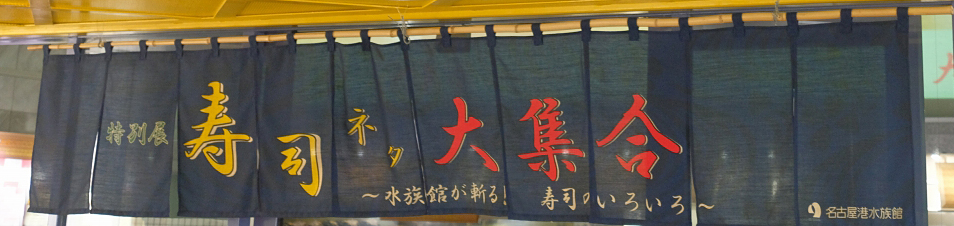 特別展 寿司ネタ大集合
～水族館が斬る！ 寿司のいろいろ～
名古屋港水族館
大